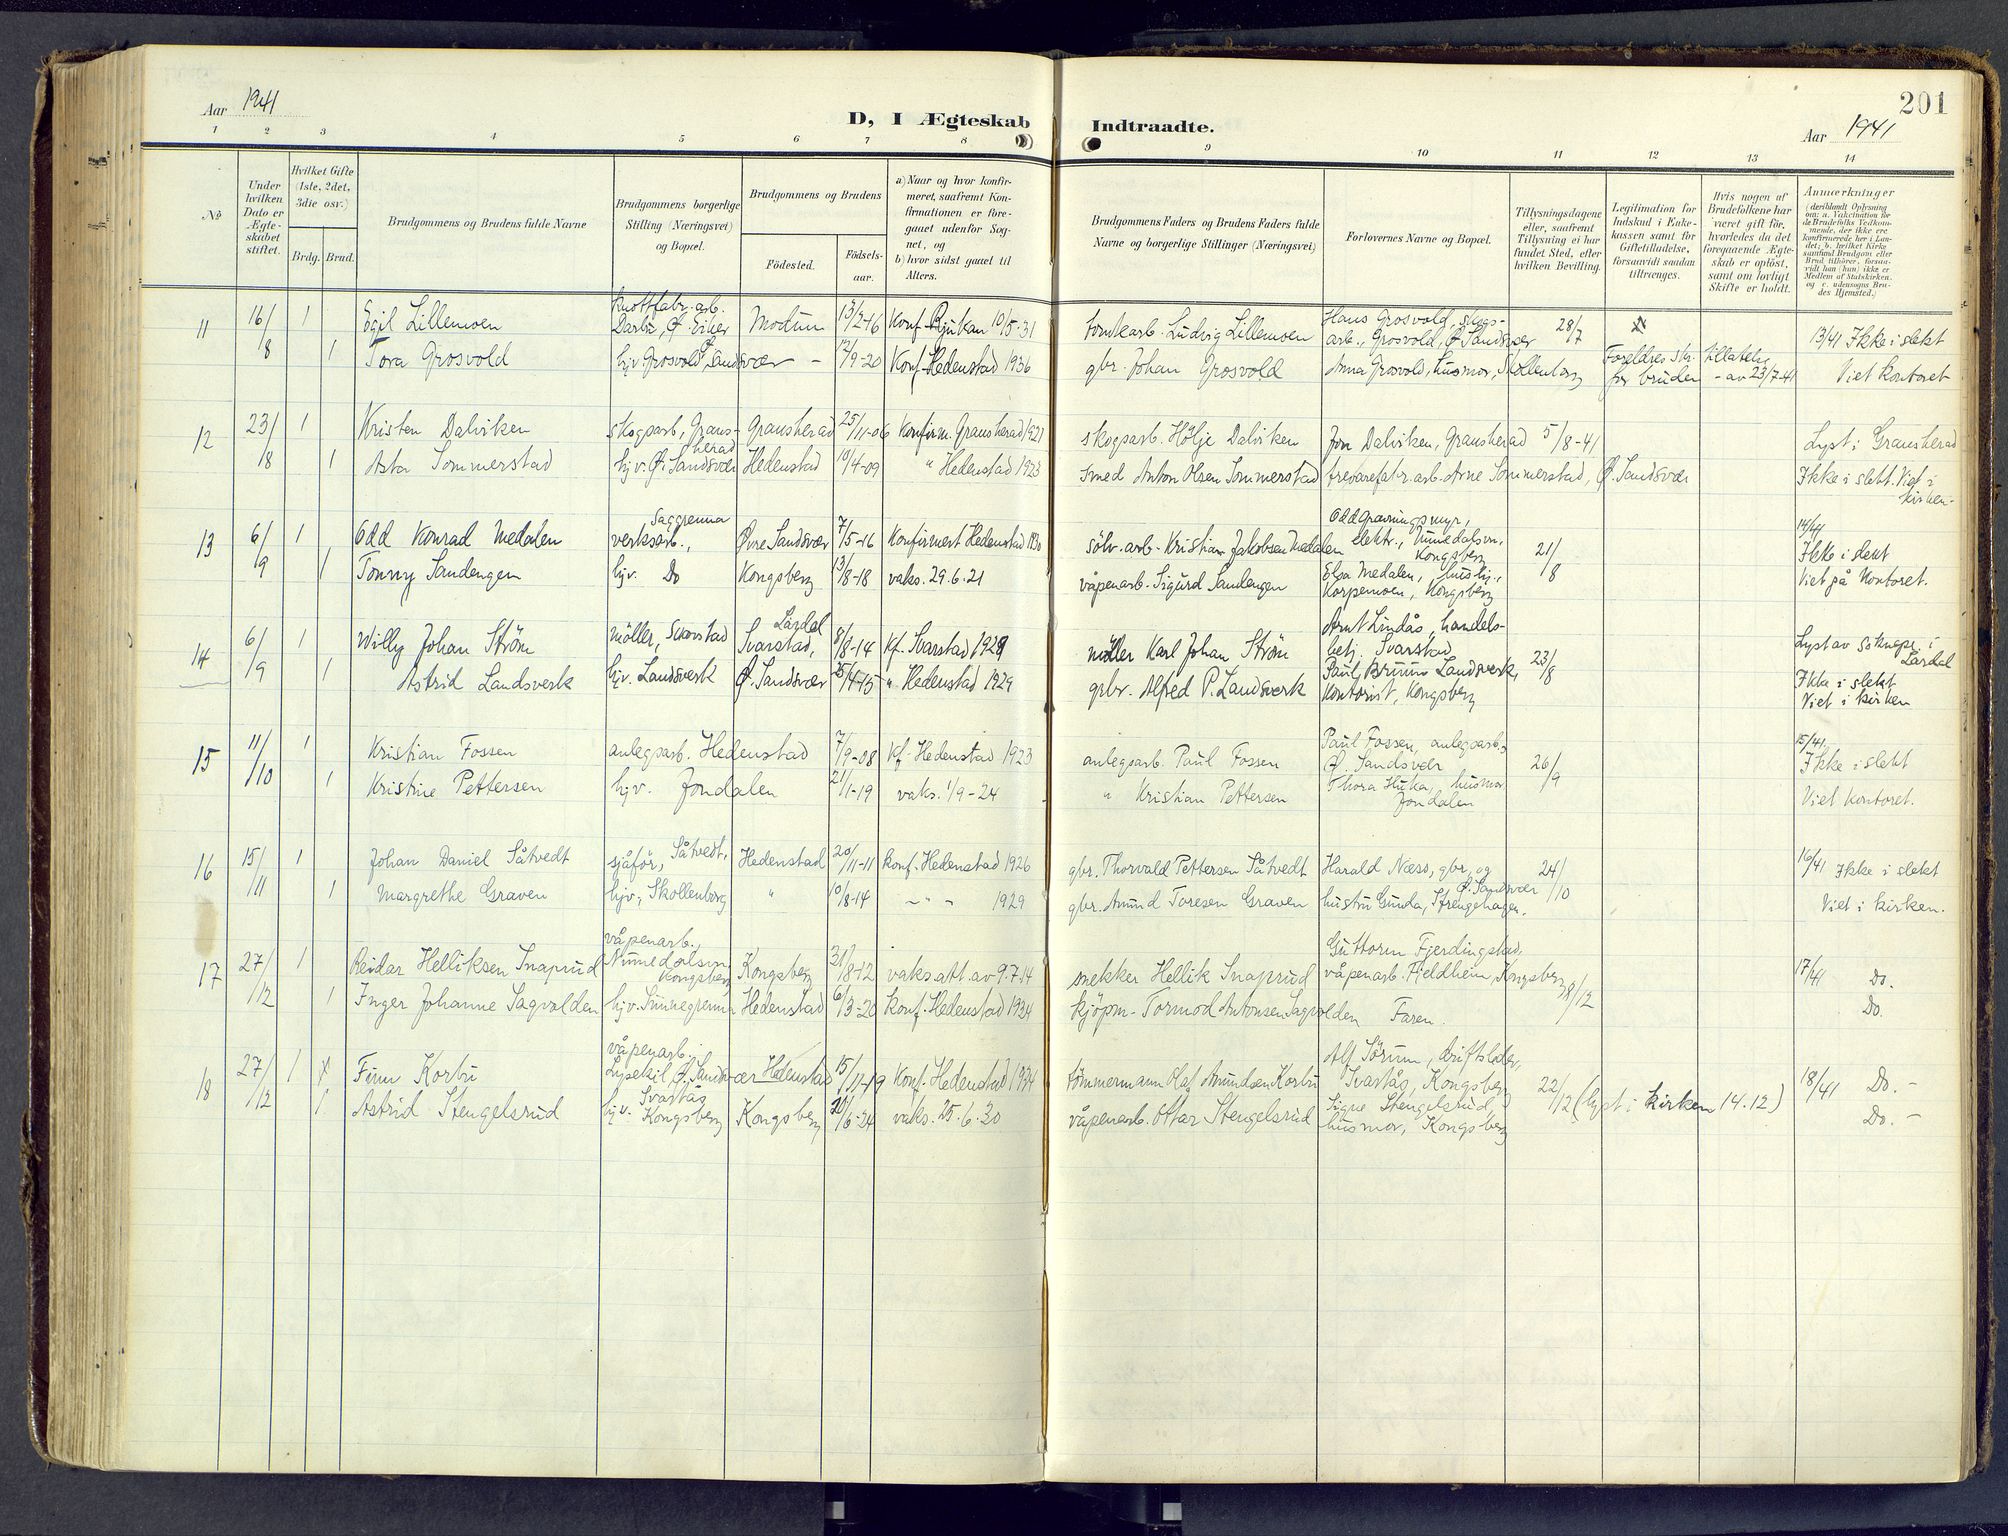 Aar 1941
D, I Ægteskab Indtraadte.
201
Aar 1941
1 2 3 4 5 6 7 8 9 10 11 12 13 14
No
Under hvilken Dato er Ægteskabet stiftet.
Hvilket Gifte (1ste, 2det, 3die osv.)
Brdg. Brud.
Brudgommens og Brudens fulde Navne
Brudgommens borgerlige Stilling (Næringsvei) og Bopæl.
Brudgommens og Brudens
Fødested.
Fødselsaar.
a) Naar og hvor konfirmeret, saafremt Konfirmationen er foregaaet udenfor Sognet, og
b) hvor sidst gaaet til Alters.
Brudgommens Faders og Brudens Faders fulde Navne og borgerlige Stillinger (Næringsvei)
Forlovernes Navne og Bopæl.
Tillysningsdagene eller, saafremt Tillysning ei har fundet Sted, efter hvilken Bevilling.
Legitimation for Indskud i Enkekassen samt for Giftetilladelse, forsaavidt saadan tiltrænges.
Hvis nogen af Brudefolkene har været gift før, hvorledes da det foregaaende Ægteskab er opløst, samt om lovligt Skifte er holdt.
Anmærkninger
(deriblandt Oplysning om: a. Vaksination for de Brudefolks Vedkommende, der ikke ere konfirmerede her i Landet; b. hvilket Kirkesamfund Brudgom eller Brud tilhører, forsaavidt han (hun) ikke er Medlem af Statskirken, og c. udensogns Brudes Hjemsted.)
11 16/8 1 Egil Lillemoen Knottfabr.arb. Darbu, Ø. Eiker Modum 13/2-16 Konf. Rjukan 10/5-31 tomtearb. Ludvig Lillemoen Hans Grosvold, skogsarb., Grosvold, Ø. Sandsvær 28/7 13/41 Ikke i slekt
1 Tora Grosvold hjv. Grosvold, Ø. Sandsvær - 12/9-20 Konf. Hedenstad 1936 gbr. Johan Grosvold Anna Grosvold, husmor, Skollenborg Foreldres skr. tillatelse for bruden - av 23/7-41 Viet kontoret
12 23/8 1 Kristen Dalviken skogsarb., Gransherad Gransherad 25/11-06 Konfirm. Gransherad 1921 skogsarb. Hølje Dalviken Jon Dalviken, Gransherad 5/8-41 Lyst i Gransherad
1 Asta Sommerstad hjv. Ø. Sandsvær Hedenstad 10/4-09 " Hedenstad 1923 smed Anton Olsen Sommerstad trevarefabr.arb. Arne Sommerstad, Ø. Sandsvær Ikke i slekt. Viet i kirken.
13 6/9 1 Odd Konrad Medalen verksarb., Saggrenna Øvre Sandsvær 7/5-16 Konfirmert Hedenstad 1930 sølv.arb. Kristian Jakobsen Medalen Odd Gravningsmyr, elektr., Numedalsvn., Kongsberg 21/8 14/41 Ikke i slekt
1 Tonny Sandengen hjv. Do Kongsberg 13/8-18 vaks. 29.6.21 våpenarb. Sigurd Sandengen Elsa Medalen, hushj., Korpemoen, Kongsberg Viet på Kontoret.
14 6/9 1 Willy Johan Strøm møller, Svarstad Svarstad, Lardal 8/8-14 Kf. Svarstad 1929 møller Karl Johan Strøm Arnt Lindås, handelsbetj. Svarstad 23/8 Lyst av soknepr. i Lardal
1 Astrid Landsverk hjv. Landsverk Ø. Sandsvær 25/4-15 " Hedenstad 1929 gbr. Alfred P. Landsverk Paul Bruun Landsverk, Kontorist, Kongsberg Ikke i slekt Viet i kirken
15 11/10 1 Kristian Fossen anlegsarb. Hedenstad 7/9-08 Kf. Hedenstad 1923 anlegsarb. Paul Fossen Paul Fossen, anlegsarb., Ø. Sandsvær 26/9 15/41 Ikke i slekt
1 Kristine Pettersen hjv. Jondalen 21/1-19 vaks. 1/9-24 " Kristian Pettersen Thora Huka, husmor Jondalen Viet kontoret.
16 15/11 1 Johan Daniel Såtvedt sjåfør, Såtvedt, Hedenstad 20/11-11 konf. Hedenstad 1926 gbr. Thorvald Pettersen Såtvedt Harald Næss, gbr, og 24/10 16/41 Ikke i slekt
1 Margrethe Graven hjv., Skollenborg " 10/8-14 - " - 1929 gbr. Amund Toresen Graven hustru Gunda, Strengehagen, Ø. Sandsvær Viet i kirken.
17 27/12 1 Reidar Helliksen Snaprud våpenarb., Numedalsvn. Kongsberg Kongsberg 31/8-12 vaks.att. av 9.7.14 snekker Hellik Snaprud Guttorm Fjerdingstad, våpenarb. Fjeldheim, Kongsberg 8/12 17/41 Do.
1 Inger Johanne Sagvolden hjv. Sunnegrenna Hedenstad 6/3-20 Konf. Hedenstad 1934 kjøpm. Tormod Antonsen Sagvolden Faren. Do.
18 27/12 1 Finn Korbu våpenarb. Lysekil, Ø. Sandsvær Hedenstad 15/11-19 Konf. Hedenstad 1934 tømmermann Olaf Amundsen Korbu Alf Sørum, driftsleder, Svartås, Kongsberg 22/12 (lyst i kirken 14.12) 18/41 Do.-
1 Astrid Stengelsrud hjv. Svartås Kongsberg Kongsberg 20/6-24 vaks. 25.6.30 våpenarb. Ottar Stengelsrud Signe Stengelsrud, husmor, Kongsberg Do.-